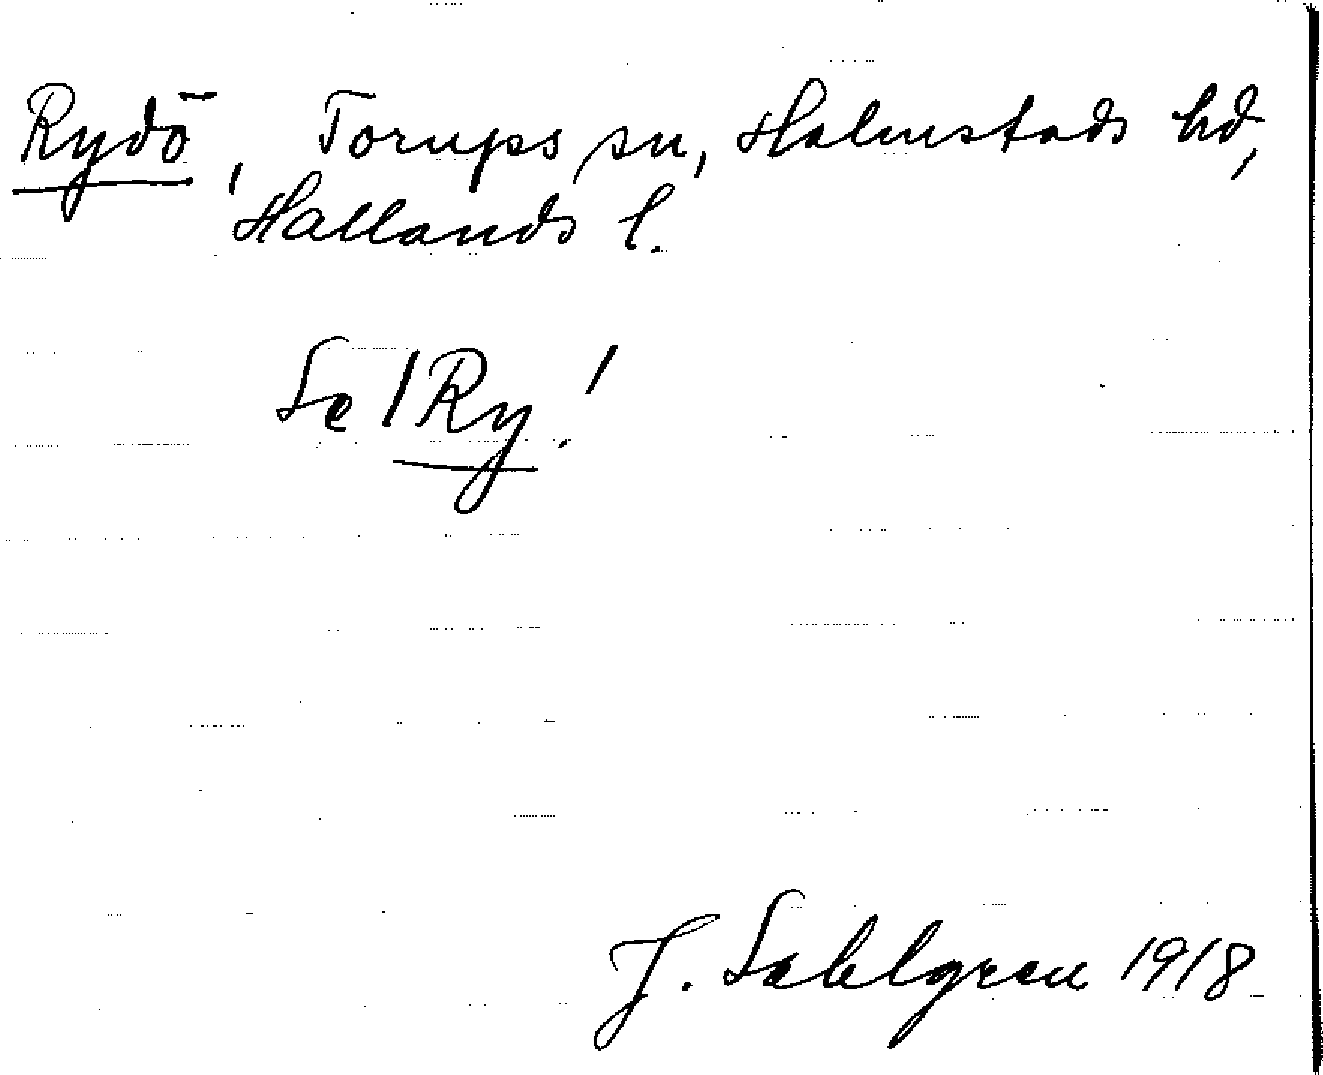 Rydö, Torups sn, Halmstads hd,
Hallands l.
Se 1 Ry!
J. Sahlgren 1918